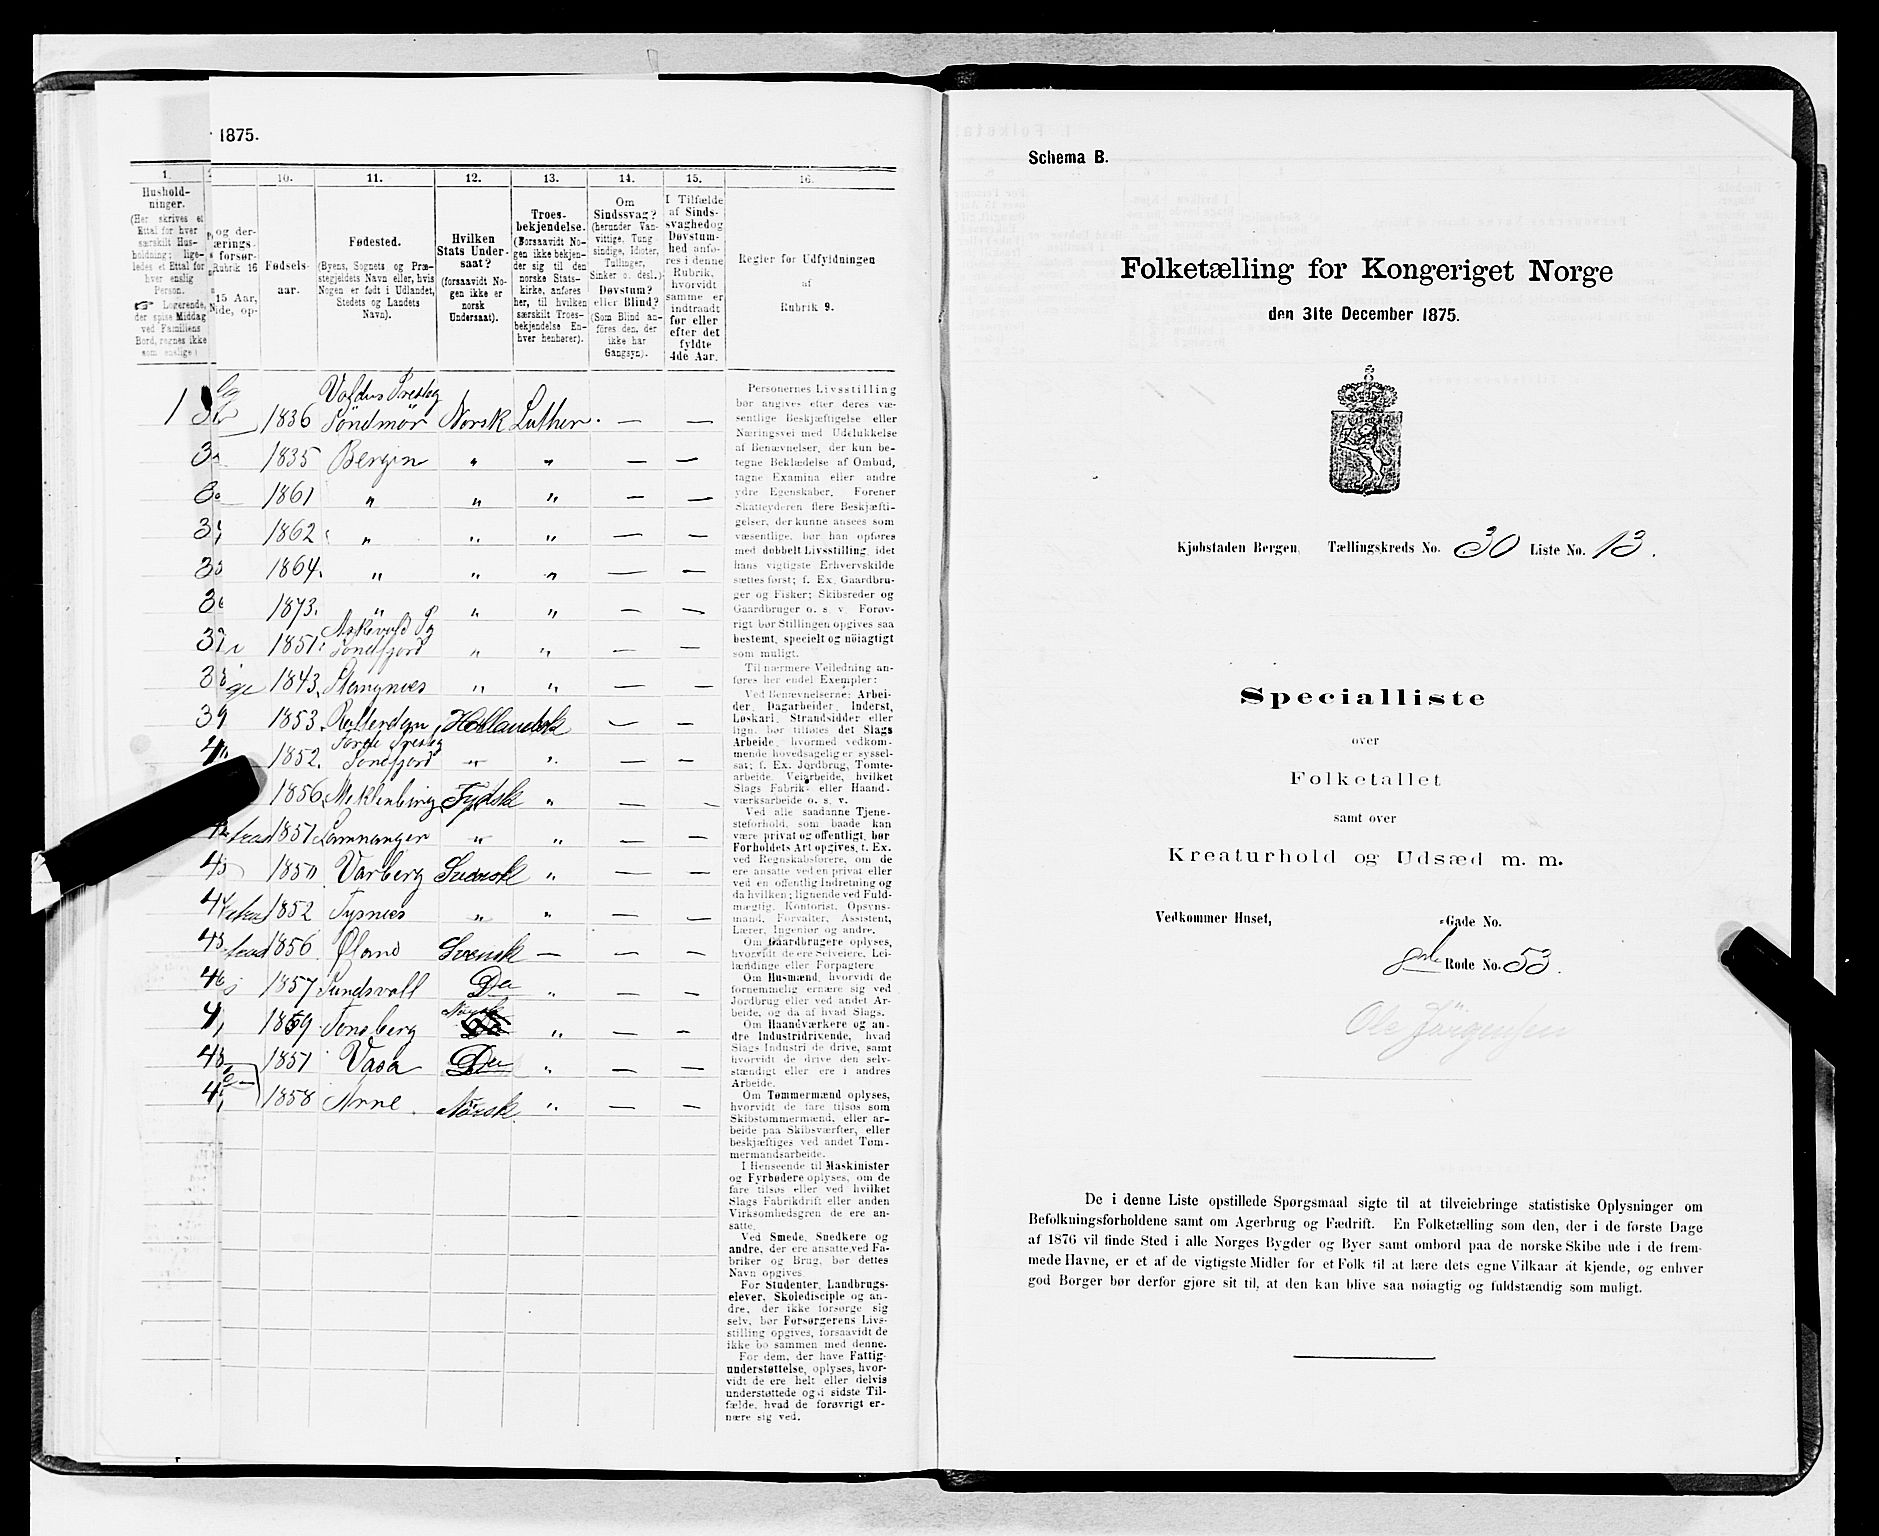 1875.
1. 10. 11. 12. 13. 14. 15. 16.
Hushold-
ninger.
(Her skrives et
Ettal for hver
særskilt Hus-
holdning; lige-
ledes et Ettal for
hver enslig
Person.
☞ Logerende,
der spise Middag
ved Familiens
Bord, regnes ikke
som enslige)
og der-
ærings-
forsør-
Rubrik 16
15 Aar,
Nide, op-
Fødsels-
aar.
Fødested.
(Byens, Sognets og Præ-
stegjeldets Navn eller, hvis
Nogen er født i Udlandet,
Stedets og Landets
Navn).
Hvilken
Stats Under-
saat?
(forsaavidt No-
gen ikke er
norsk
Undersaat).
Troes-
bekjendelse.
(Forsaavidt No-
gen ikke bekjen-
der sig til den
norske Stats-
kirke, anføres
her, til hvilken
særskilt Troes-
bekjendelse En-
hver henhører).
Om
Sindssvag?
(herunder Van-
vittige, Tung-
sindige, Idioter,
Tullinger,
Sinker o. desl.)
Døvstum?
eller Blind?
(Som Blind an-
føres den, der
ikke har
Gangsyn).
I Tilfælde
af Sinds-
svaghed og
Døvstum-
hed anfø-
res i denne
Rubrik,
hvorvidt
samme er
indtraadt
før eller
efter det
fyldte
4de Aar.
Regler for Udfyldningen
af
Rubrik 9.
1 1836 Søndmør Norsk Luther. — —
1835 Bergen " " — —
1861 " " " — —
1862 " " " — —
1864. " " " — —
1873. " " " — —
Askevold
1851. Søndfjord " " — —
1843. " " — —
1853. Rotterdam Hollandsk — —
1852. Søndfjord " " — —
1856. Meklenburg Tydsk " — —
1851 Samnanger " " —
1850 Varberg Svensk " — —
1852 Tysnes " " — —
1856. Øland Svensk — — —
1857 Sundsvall Do " — —
1859. Tønsberg Norsk " — —
1851 Vasa Do " — —
1858 Arne. Norsk. " — —
Personernes Livsstilling
bør angives efter deres væ-
sentlige Beskjæftigelse eller
Næringsvei med Udelukkelse
af Benævnelser, der kun be-
tegne Beklædelse af Ombud,
tagne Examina eller andre
ydre Egenskaber. Forener
Skatteyderen flere Beskjæfti-
gelser, der kunne ansees som
væsentlige, bør han opføres
med dobbelt Livsstilling, idet
hans vigtigste Erhvervskilde
sættes først; f. Ex. Gaardbru-
ger og Fisker; Skibsreder og
Gaardbruger o. s. v. Forøv-
rigt bør Stillingen opgives saa
bestemt, specielt og nöiagtigt
som muligt.
Til nærmere Veiledning an-
føres her endel Exempler:
Ved Benævnelserne: Arbei-
der, Dagarbeider, Inderst,
Løskarl, Strandsidder eller
lign. bør tilføies det Slags
Arbeide, hvormed vedkom-
mende hovedsagelig er syssel-
sat; f. Ex. Jordbrug, Tomte-
arbeide, Veiarbeide, hvilket
Slags Fabrik- eller Haand-
værksarbeide o. s. v.
Ved alle saadanne Tjene-
steforhold, som baade kan
være privat og offentligt, bør
Forholdets Art opgives, f. Ex.
ved Regnskabsførere, om de
ere ansatte ved en privat eller
ved en offentlig Indretning og
da hvilken; lignende ved Fuld-
mægtig, Kontorist, Opsyns-
mand, Forvalter, Assistent,
Lærer, Ingeniør og andre.
Om Gaardbrugere oplyses,
hvorvidt de ere Selveiere, Lei-
lændinge eller Forpagtere
Om Husmænd, hvorvidt de
fornemmelig ernære sig ved
Jordbrug eller ved andet Ar-
beide, og da af hvad Slags.
Om Haandværkere og an-
dre Industridrivende, hvad
Slags Industri de drive, samt
hvorvidt de drive den selv-
stændigt eller ere i andres
Arbeide.
Om Tømmermænd oplyses,
hvorvidt de fare tilsøs som
Skibstømmermænd, eller ar-
beide paa Skibsværfter, eller
beskjæftiges ved andet Tøm-
mermandsarbeide.
I Henseende til Maskinister
og Fyrbødere oplyses, om de
fare tilsøs eller ved hvilket
Slags Fabrikdrift eller anden
Virksomhedsgren de ere an-
satte.
Ved Smede, Snedkere og
andre, der ere ansatte ved Fa-
briker og Brug, bør dettes
Navn opgives
For Studenter, Landbrugs-
elever, Skoledisciple og an-
dre, der ikke forsørge sig
selv, bør Forsørgerens Livs-
stilling opgives, forsaavidt de
ikke bo sammen med denne.
For dem, der have Fattig-
understøttelse, oplyses, hvor-
vidt de ere helt eller delvis
understøttede og i sidste Til-
fælde, hvad de forøvrigt er-
nære sig ved.
Schema B.
Folketælling for Kongeriget Norge
den 31te December 1875.
Kjøbstaden Bergen, Tællingskreds No. 30 Liste No. 13.
Specialliste
over
Folketallet
samt over
Kreaturhold og Udsæd m. m.
Vedkommer Huset, -Gade No.
Rode No. 53.
Ole Jörgensen
De i denne Liste opstillede Spørgsmaal sigte til at tilveiebringe statistiske Oplysninger om
Befolkningsforholdene samt om Agerbrug og Fædrift. En Folketælling som den, der i de første Dage
af 1876 vil finde Sted i alle Norges Bygder og Byer samt ombord paa de norske Skibe ude i de frem-
mede Havne, er et af de vigtigste Midler for et Folk til at lære dets egne Vilkaar at kjende, og enhver
god Borger bør derfor gjøre sit til, at den kan blive saa nøiagtig og fuldstændig som muligt.